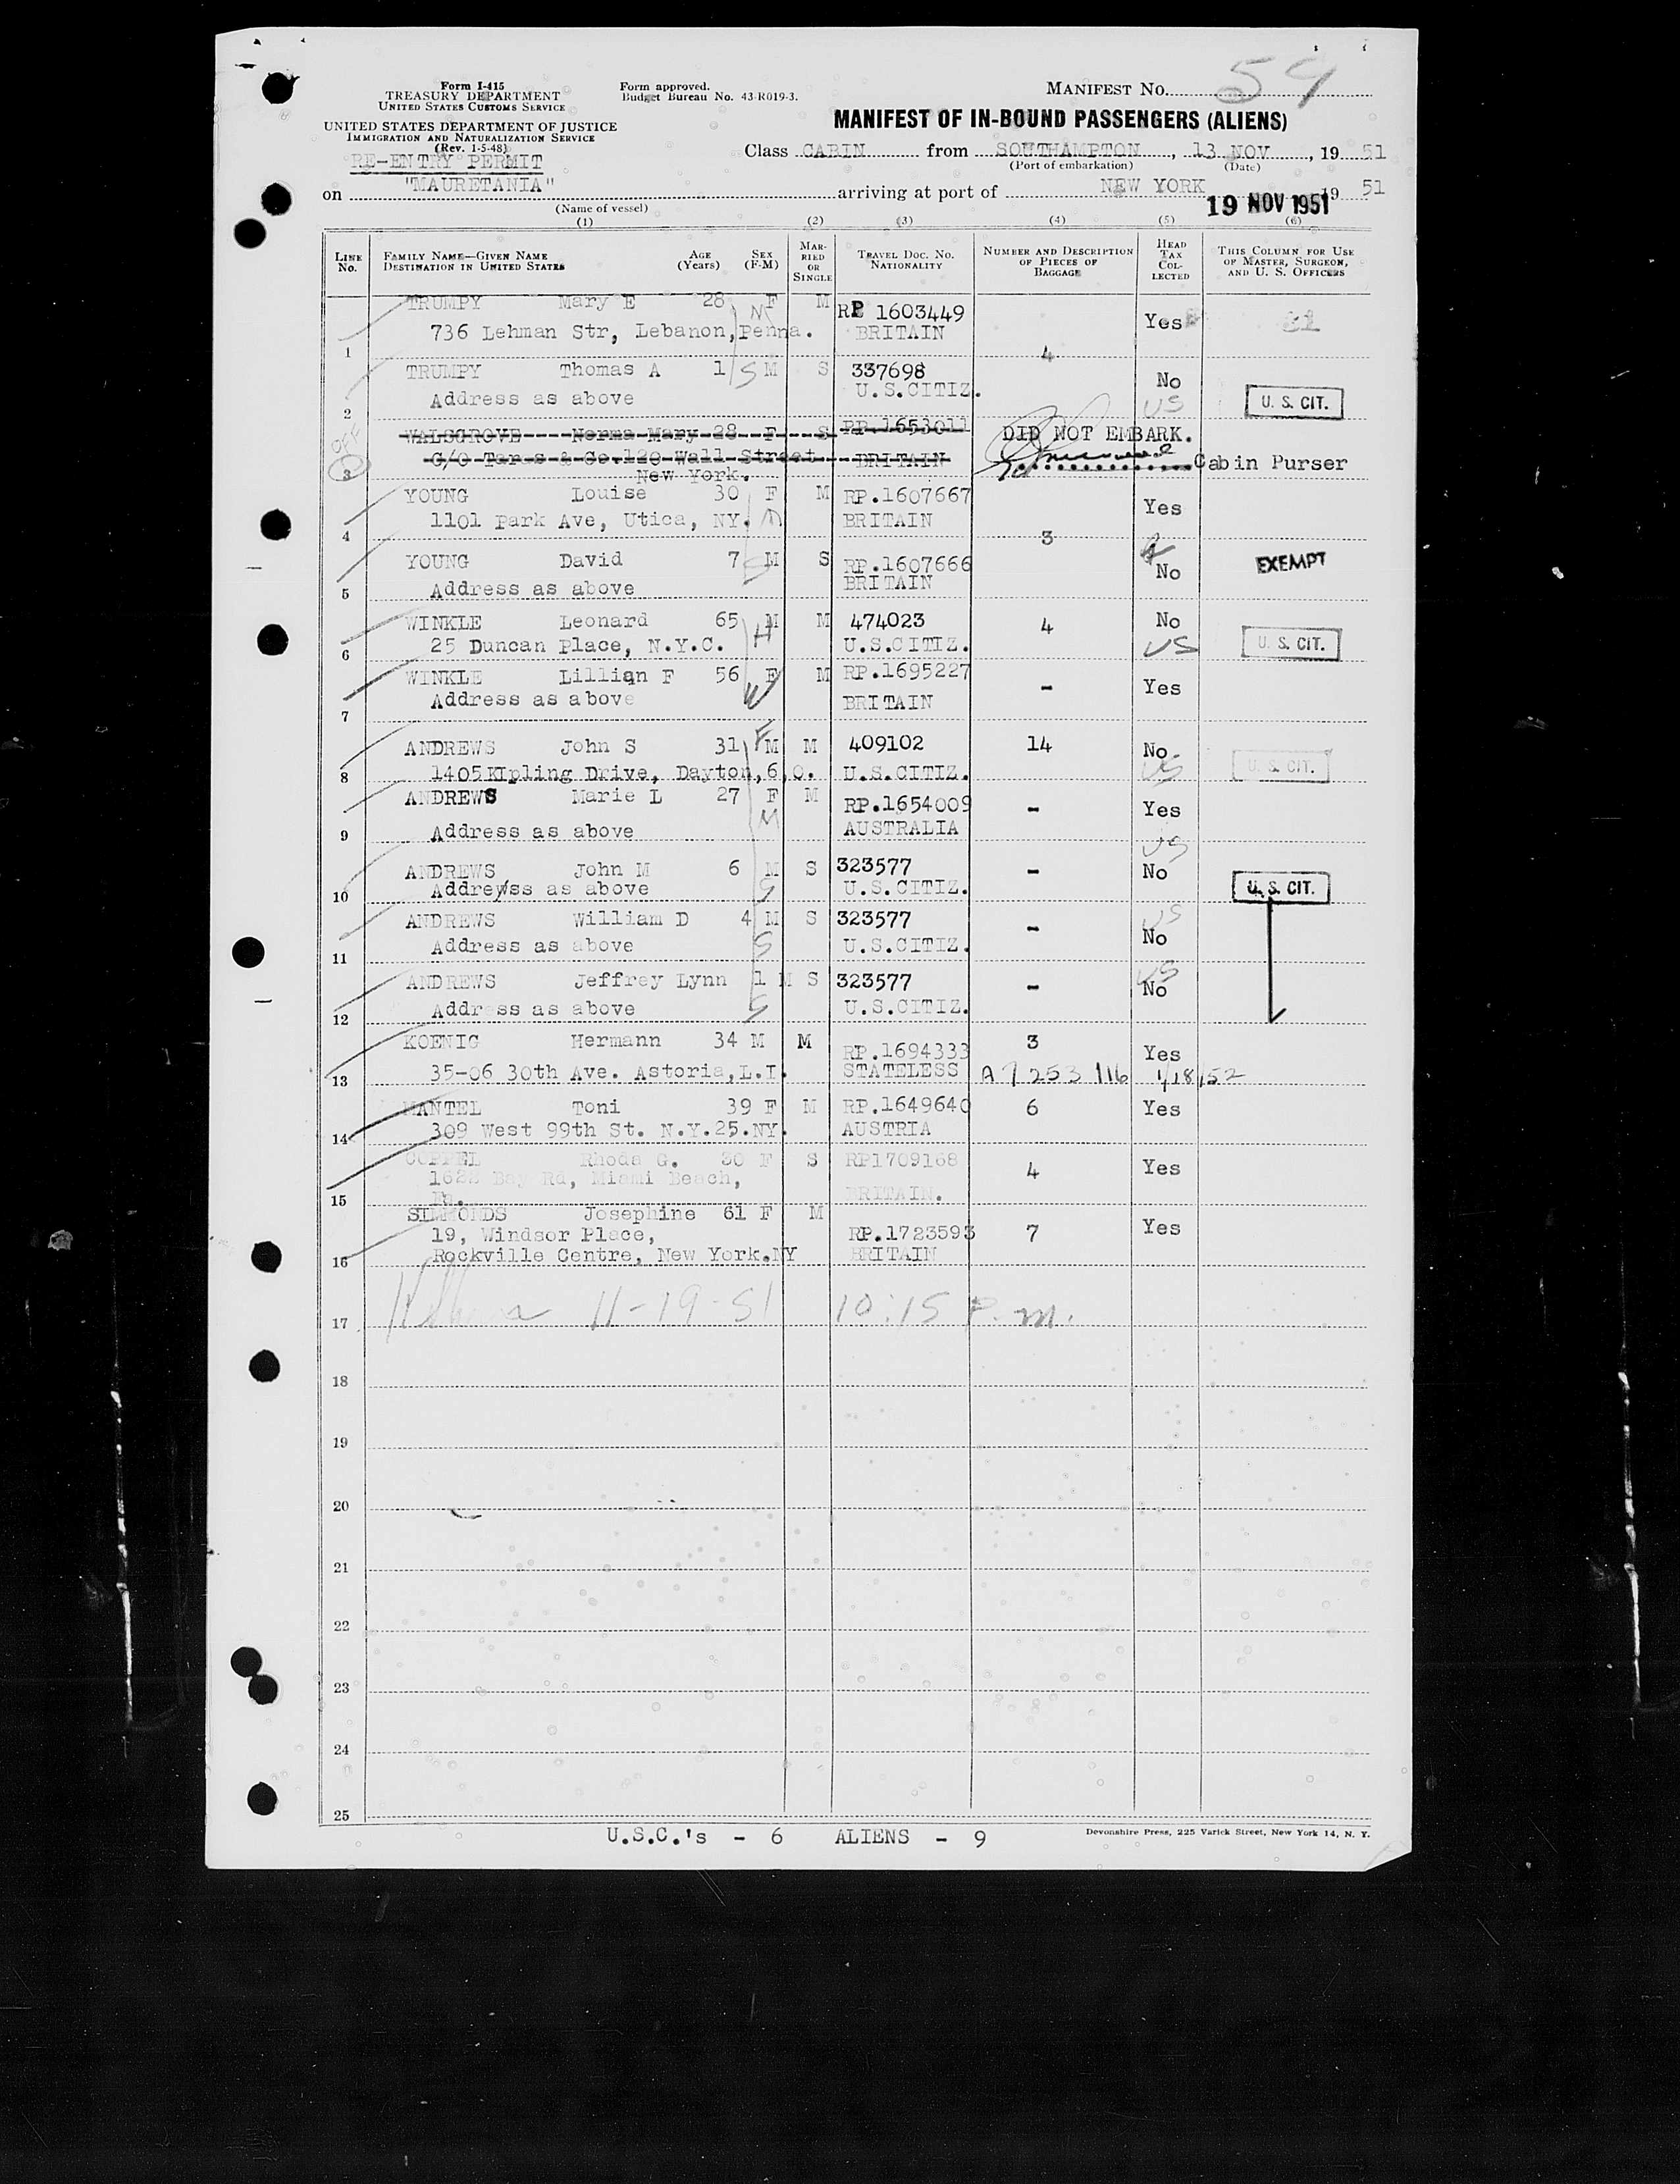 Form I-415
TREASURY DEPARTMENT
UNITED STATES CUSTOMS SERVICE
UNITED STATES DEPARTMENT OF JUSTICE
IMMIGRATION AND NATURALIZATION SERVICE
(Rev. 1-5-48)
Form approved.
Budget Bureau No. 43-R019-3.
MANIFEST NO. 54
MANIFEST OF IN-BOUND PASSENGERS (ALIENS)
RE-ENTRY PERMIT
Class CABIN from SOUTHAMPTON, 13 NOV, 19 51
(Port of embarkation) (Date)
on "MAURETANIA" arriving at port of NEW YORK 19 NOV 1951 19 51
(Name of vessel)
(1) (2) (3) (4) (5) (6)
LINE NO. FAMILY NAME—GIVEN NAME DESTINATION IN UNITED STATES AGE (Years) SEX (F-M) MARRIED OR SINGLE TRAVEL DOC. NO. NATIONALITY NUMBER AND DESCRIPTION OF PIECES OF BAGGAGE HEAD TAX COLLECTED THIS COLUMN FOR USE OF MASTER, SURGEON, AND U. S. OFFICERS
TRUMPY Mary E 28 F M RP 1603449 Yes
1 736 Lehman Str, Lebanon, Penna. BRITAIN
4
TRUMPY Thomas A 1 S M S 337698 No
2 Address as above U.S.CITIZ. US U. S. CIT.
OFF
WALSGROVE Norma Mary 28 F S RP.1653011 DID NOT EMBARK.
3 C/O & Co.120 Wall Street BRITAIN Cabin Purser
New York.
YOUNG Louise 30 F M RP.1607667 Yes
4 1101 Park Ave, Utica, NY. BRITAIN
3
YOUNG David 7 M S RP.1607666 No EXEMPT
5 Address as above BRITAIN
WINKLE Leonard 65 M H M 474023 4 No
6 25 Duncan Place, N.Y.C. U.S.CITIZ. US U. S. CIT.
WINKLE Lillian F 56 F W M RP.1695227 - Yes
7 Address as above BRITAIN
ANDREWS John S 31 F M M 409102 14 No
8 1405 KIpling Drive, Dayton, 6, O. U.S.CITIZ. US U. S. CIT.
ANDREWS Marie L 27 F M M RP.1654009 - Yes
9 Address as above AUSTRALIA
US
ANDREWS John M 6 M S 323577 - No
10 Addreyss as above S U.S.CITIZ. U. S. CIT.
ANDREWS William D 4 M S 323577 - US
11 Address as above S U.S.CITIZ. No
ANDREWS Jeffrey Lynn 1 M S 323577 - US No
12 Address as above S U.S.CITIZ.
KOENIG Hermann 34 M M RP.1694333 3 Yes
13 35-06 30th Ave. Astoria, L.I. STATELESS A 7 253 116 1/18/52
MANTEL Toni 39 F M RP.1649640 6 Yes
14 309 West 99th St. N.Y.25.NY. AUSTRIA
COPPEL Rhoda G. 30 F S RP1709168 4 Yes
1622 Bay Rd, Miami Beach,
15 BRITAIN.
SIMMONDS Josephine 61 F M
19, Windsor Place, RP.1723593 7 Yes
16 Rockville Centre, New York.NY BRITAIN
17 11-19-51 10:15 P.m.
18
19
20
21
22
23
24
25
U.S.C.'s - 6 ALIENS - 9
Devonshire Press, 225 Varick Street, New York 14, N. Y.